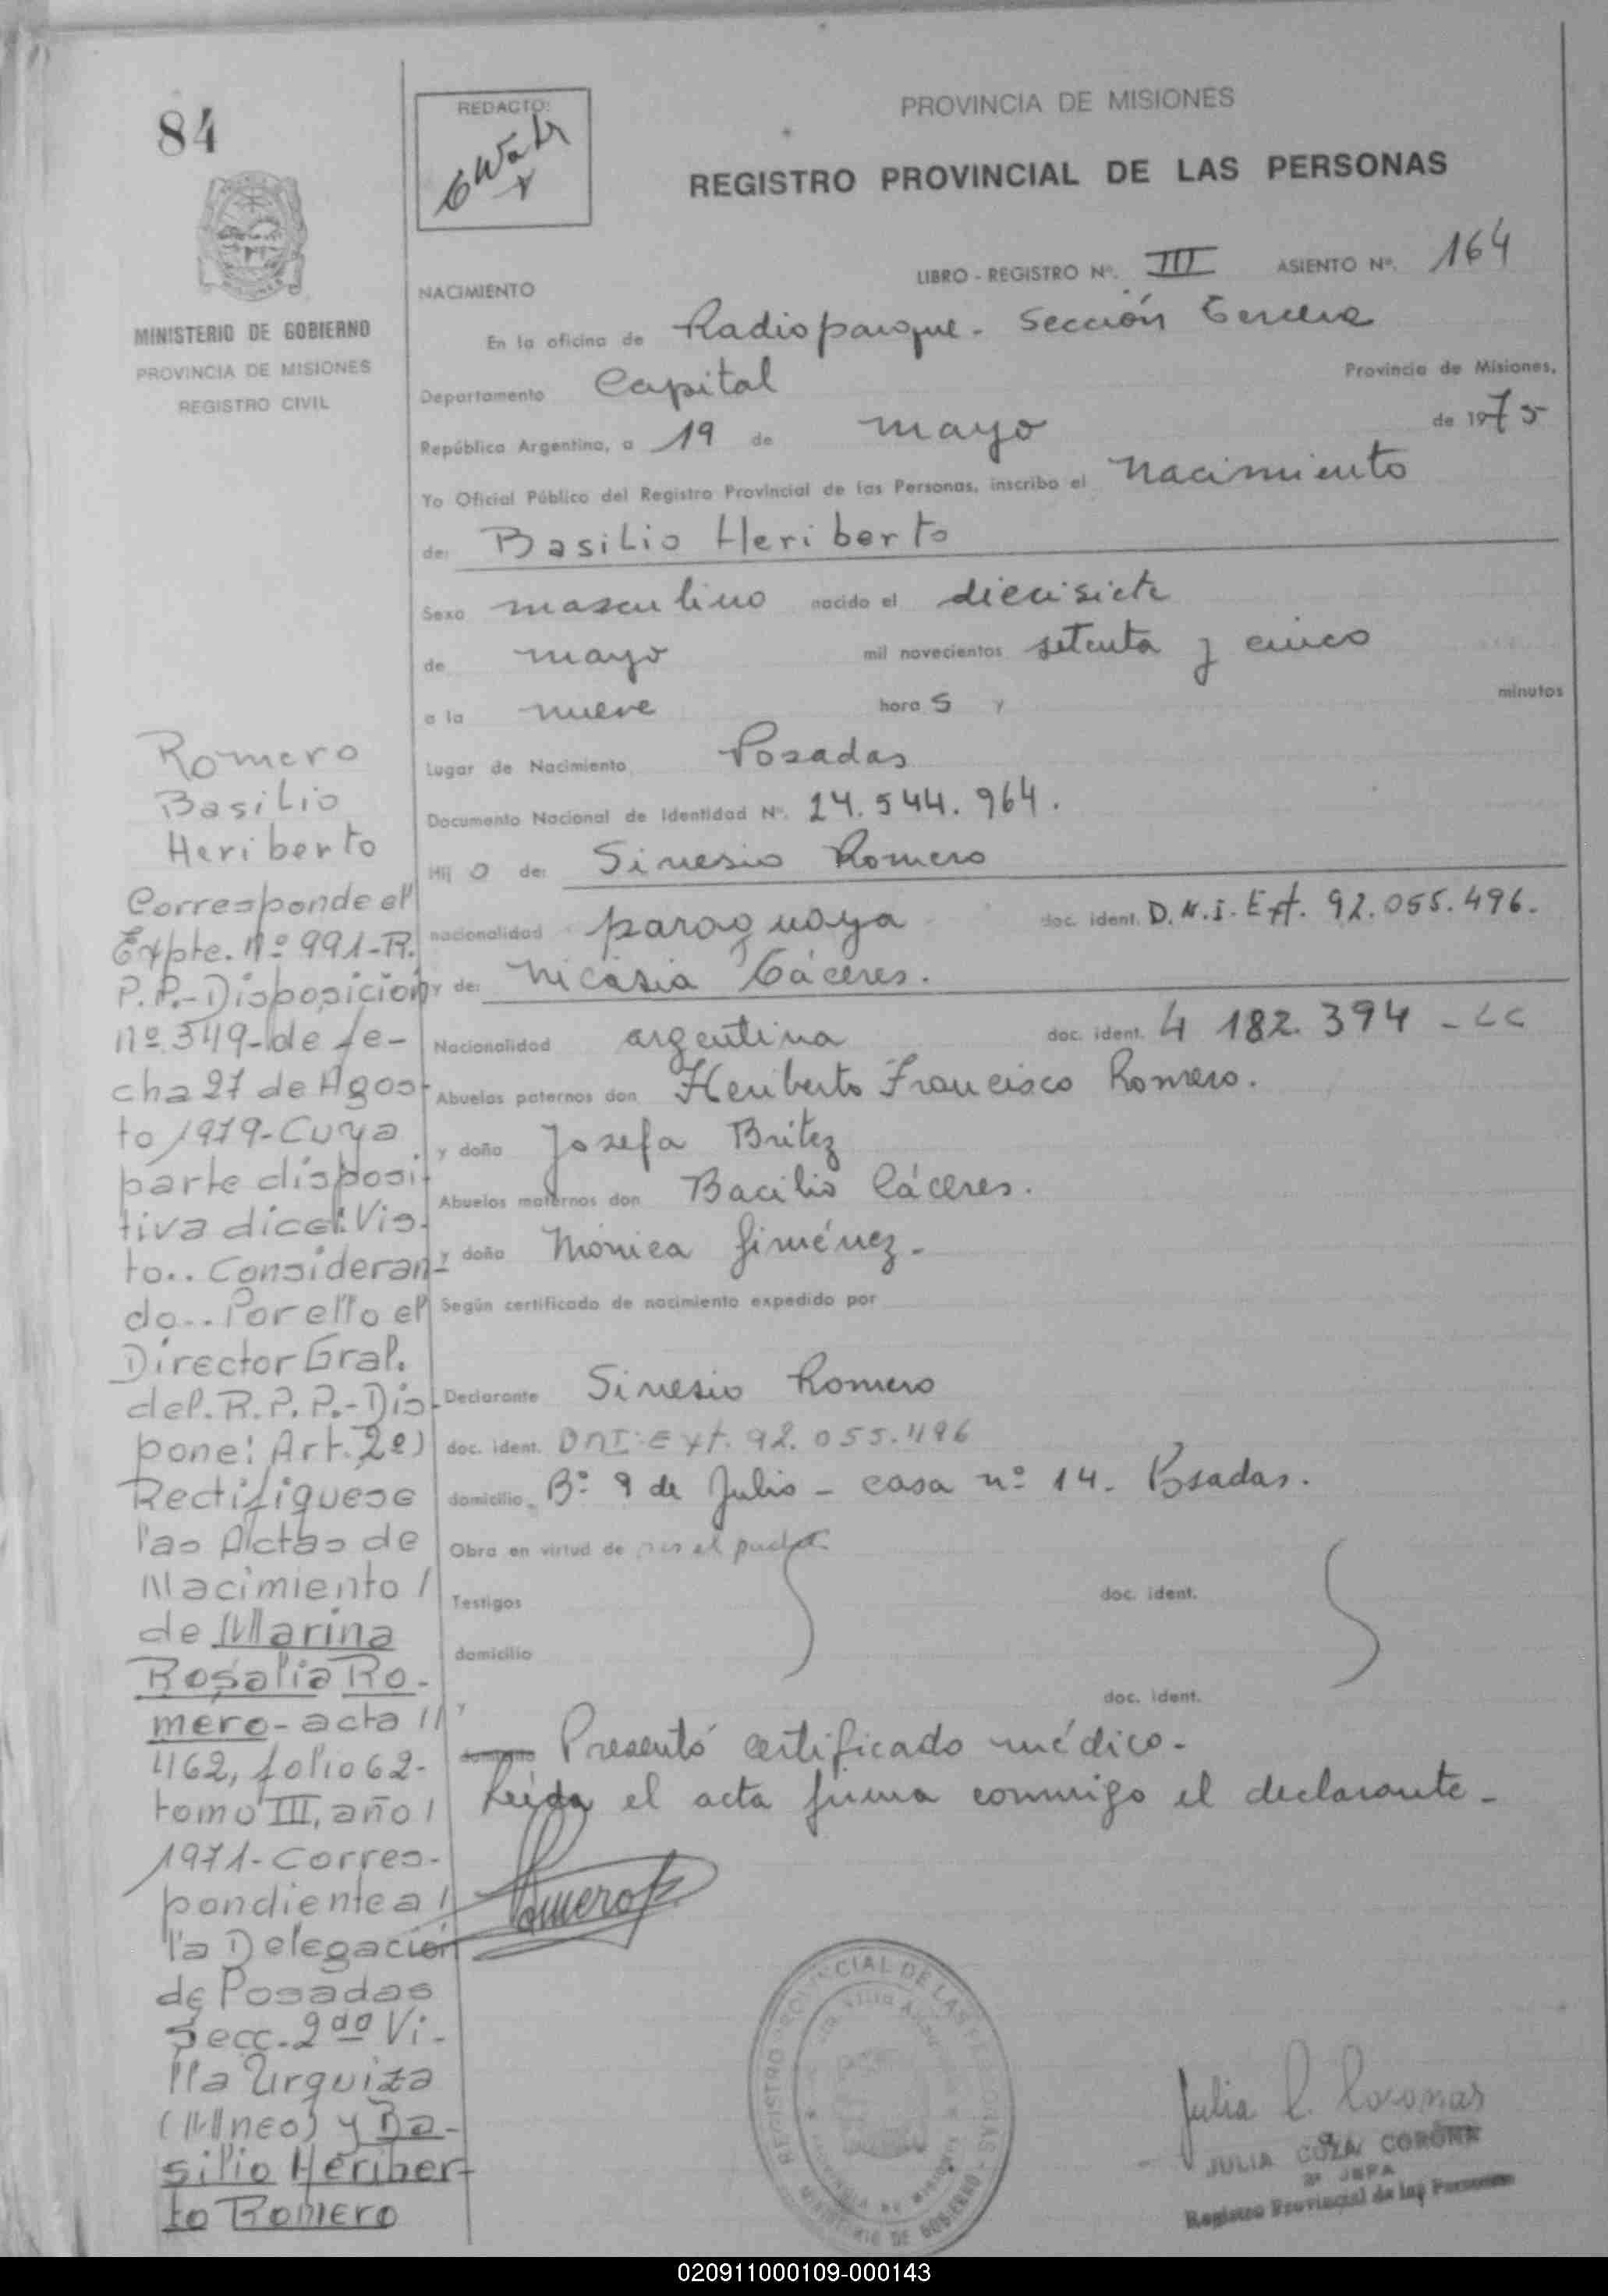 84
REDACTO:
PROVINCIA DE MISIONES
REGISTRO PROVINCIAL DE LAS PERSONAS
LIBRO - REGISTRO Nº. III ASIENTO Nº. 164
MINISTERIO DE GOBIERNO
PROVINCIA DE MISIONES
REGISTRO CIVIL
NACIMIENTO
En la oficina de Radioparque - Sección Tercera
Departamento Capital Provincia de Misiones,
República Argentina, a 19 de mayo de 1975
Yo Oficial Público del Registro Provincial de las Personas, inscribo el Nacimiento
de: Basilio Heriberto
Sexo masculino nacido el diecisiete
de mayo mil novecientos setenta y cinco
a la nueve hora s y minutos
Lugar de Nacimiento Posadas
Documento Nacional de Identidad Nº. 24.544.964.
Hij o de: Sinesio Romero
nacionalidad paraguaya doc. ident. D.N.I. Ext. 92.055.496.
y de: Nicasia Cáceres.
Nacionalidad argentina doc. ident. 4 182.394 - LC
Abuelos paternos don Heriberto Francisco Romero.
y doña Josefa Britez
Abuelos maternos don Bacilio Cáceres.
y doña Mónica Giménez -
Según certificado de nacimiento expedido por
Declarante Sinesio Romero
doc. ident. DNI: Ext. 92.055.496
domicilio Bº 9 de Julio - casa nº 14. Posadas.
Obra en virtud de ser el padre
Testigos doc. ident.
domicilio
y doc. ident.
domicilio Presentó certificado médico -
Leída el acta firma conmigo el declarante -
Romero
Romero
Basilio
Heriberto
Corresponde el
Expte. Nº 991-R.
P.P.- Disposición
nº 349- de fe-
cha 27 de Agos-
to 1979- Cuya
parte disposi-
tiva dice: Vis-
to.. Consideran-
do.. Por ello el
Director Gral.
del. R.P.P.- Dis-
pone: Art. 2º)
Rectifiquese
las Actas de
Nacimiento /
de Marina
Rosalia Ro-
mero - acta //
462, folio 62-
tomo III, año /
1971- Corres-
pondiente a /
la Delegación
de Posadas
Secc. 2da Vi-
lla Urquiza
(Mneo) y Ba-
silio Heriber-
to Romero
REGISTRO PROVINCIAL DE LAS PERSONAS
MINISTERIO DE GOBIERNO
PROVINCIA DE MISIONES
Julia C. Coronas
JULIA CORONA
JEFA
Registro Provincial de las Personas
020911000109-000143